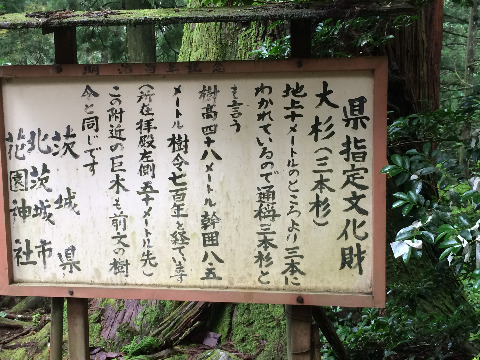 県指定文化財
大杉(三本杉)
地上十メートルのところより三本に
わかれているので通称三本杉と
も言う
樹高四十八メートル 幹囲八五
メートル 樹令七百年を経ています
(所在拝殿左側五十メートル先)
この附近の巨木も前文の樹
令と同じです
茨城県
北茨城市
花園神社